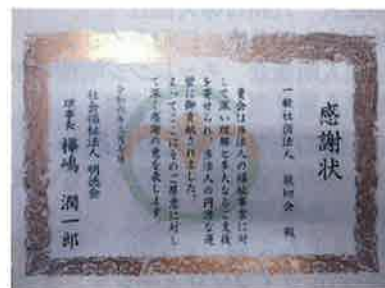 感謝状
一般社団法人 親切会 殿
貴会は当法人の福祉事業に対
して深い理解と多大なるご支援
を寄せられ、当法人の円滑な運
営に御貢献されました
よってここにその御厚意に対し
て深く感謝の意を表します
社会福祉法人 明徳会
理事長 樺嶋 潤一郎